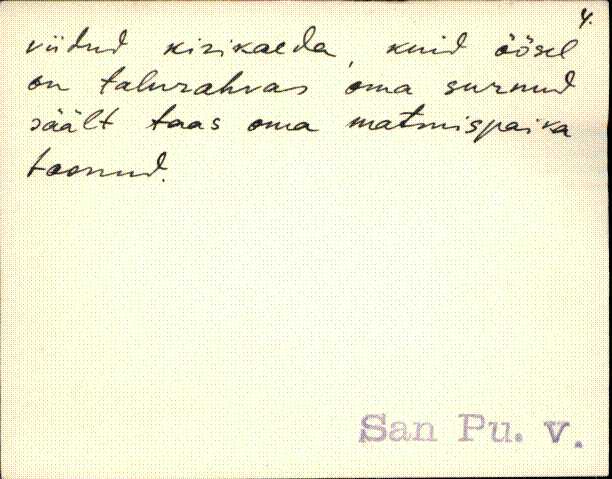 4.
viidud kirikaeda, kuid öösel
on talurahvas oma surnud
säält taas oma matmispaika
toonud.
San Pu. v.